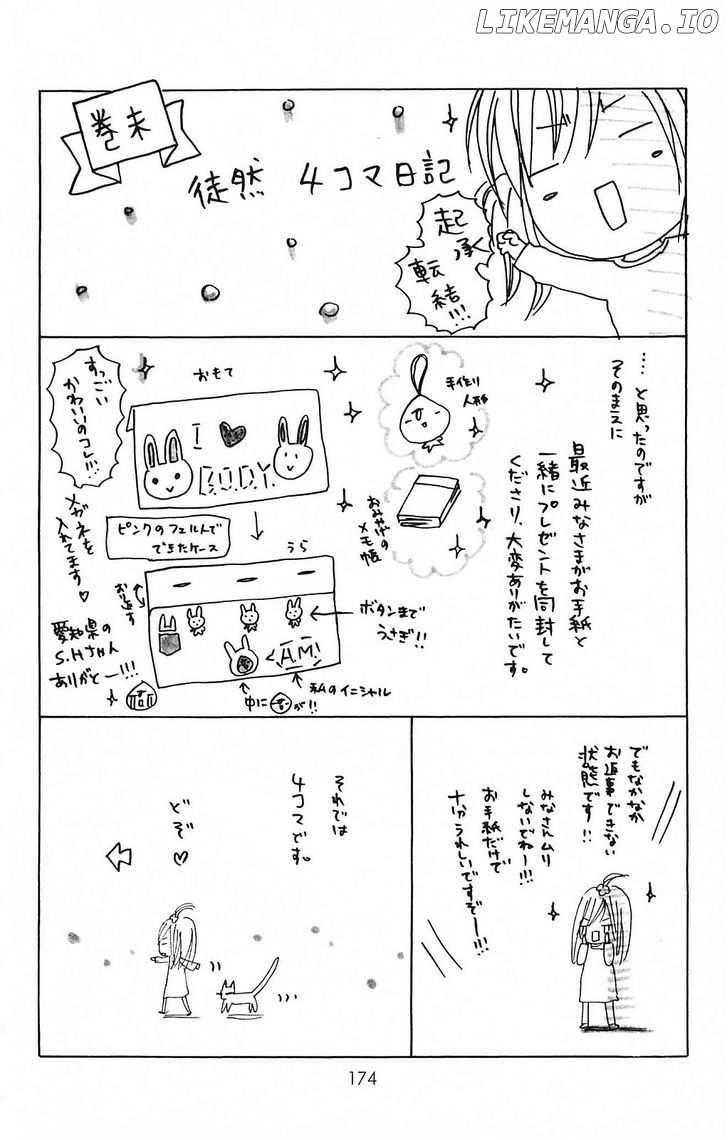 LIKEMANGA.IO
巻末
徒然 4コマ日記
起承
転結!!!
…と思ったのですが
そのまえに
最近みなさまがお手紙と
一緒にプレゼントを同封して
くださり、大変ありがたいです。
手作り
人形
おみやげの
メモ帳
すっごい
かわいいのコレ!!!
おもて
I ♥
BODY
ピンクのフェルトで
できたケース
メガネを
入れてます♡
うら
お返す
ボタンまで
うさぎ!!
A.M!
私のイニシャル
中に
が!!
愛知県の
S.Hさん
ありがとー!!!
でもなかなか
お返事できない
状態です!!
みなさんムリ
しないでねー!!!
お手紙だけで
十分うれしいですぞー!!!
それでは
4コマです。
どぞ♡
174